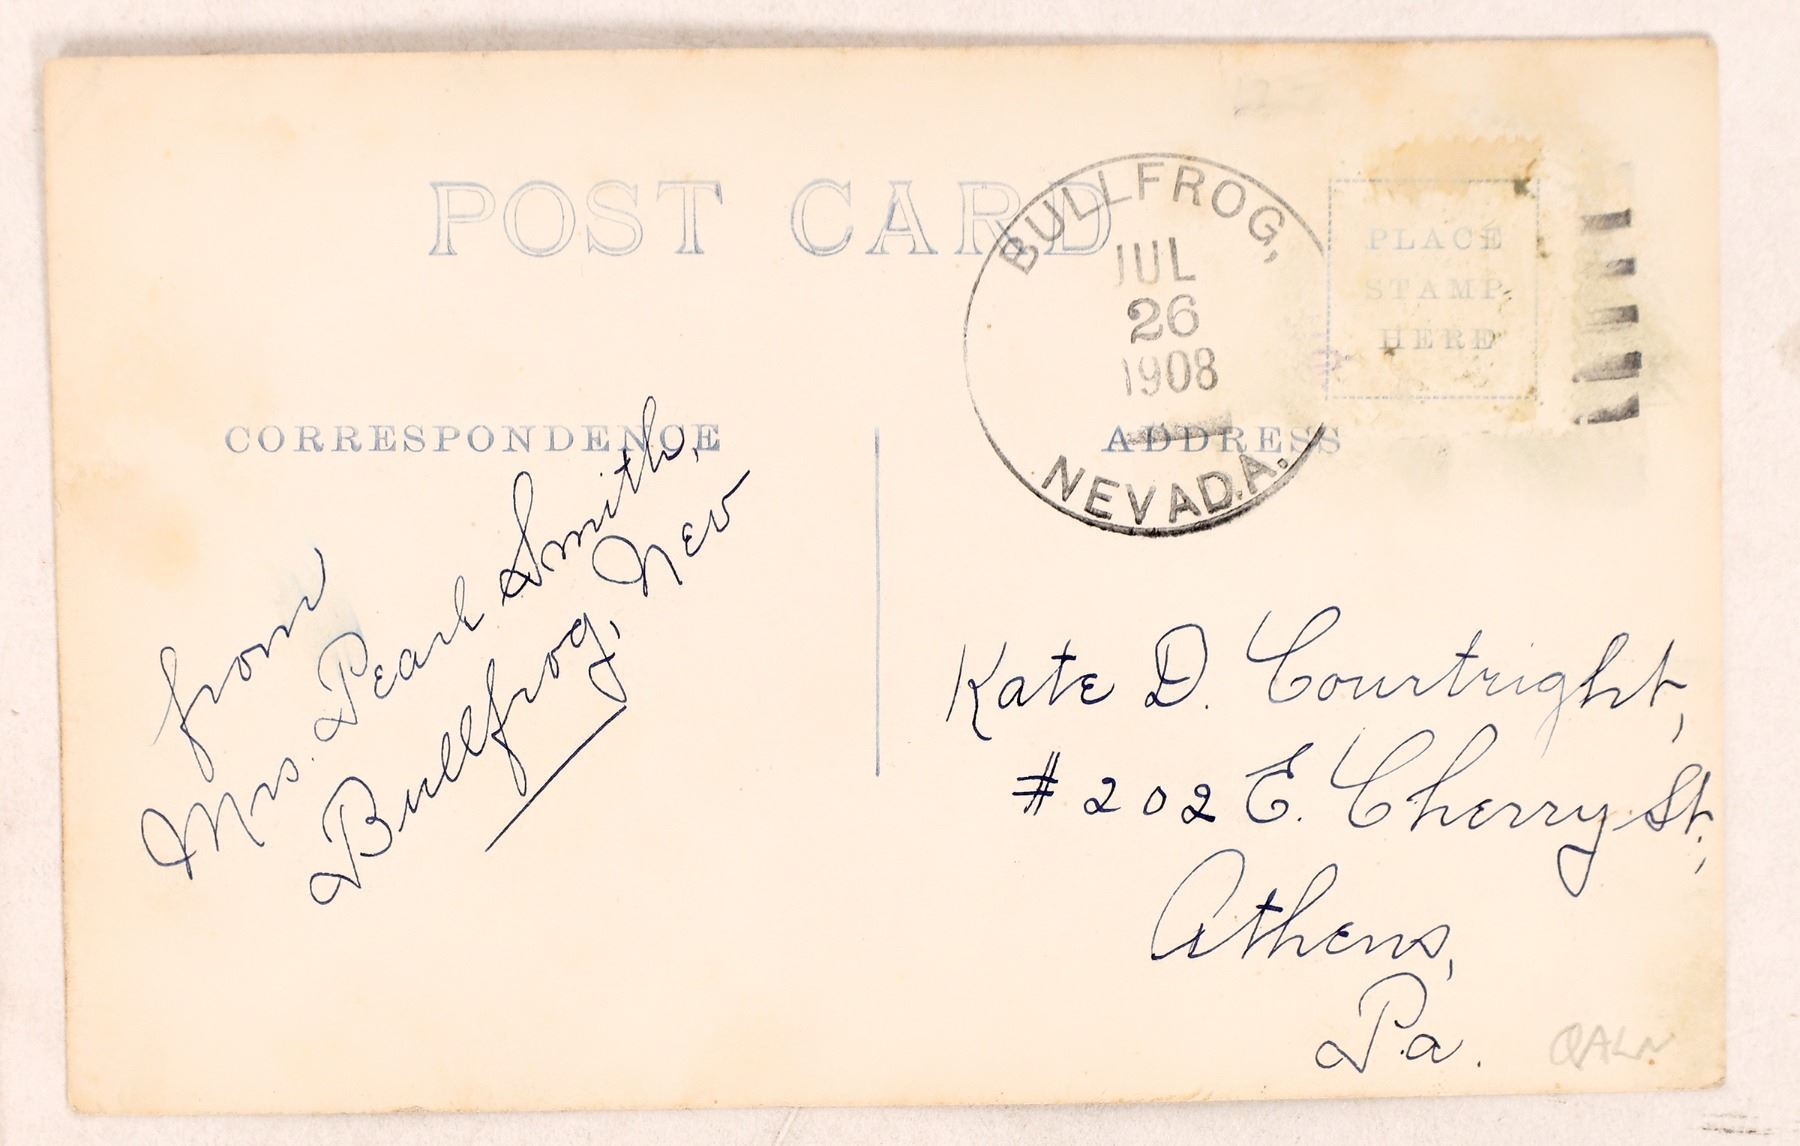 POST CARD
BULLFROG,
JUL
26
1908
NEVADA.
PLACE
STAMP
HERE
CORRESPONDENCE
ADDRESS
from
Mrs. Pearl Smith,
Bullfrog, Nev
Kate D. Courtright,
# 202 E. Cherry St.,
Athens,
Pa.